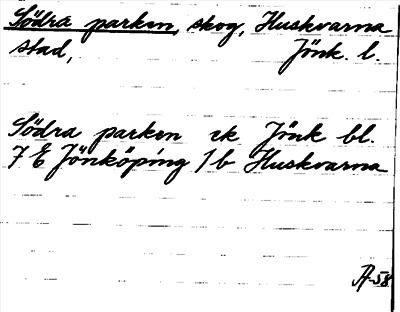 Södra parken, skog, Huskvarna
stad, Jönk. l.
Södra parken ek Jönk bl.
7 E Jönköping 1b Huskvarna
A-58